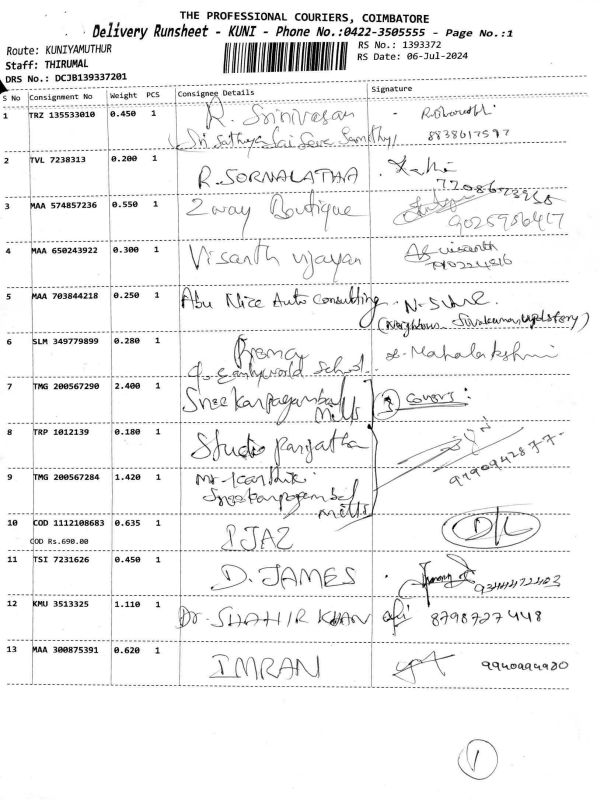 THE PROFESSIONAL COURIERS, COIMBATORE
Delivery Runsheet - KUNI - Phone No.:0422-3505555 - Page No.:1
Route: KUNIYAMUTHUR
RS No.: 1393372
Staff: THIRUMAL
RS Date: 06-Jul-2024
DRS No.: DCJB139337201
S No Consignment No Weight PCS Consignee Details Signature
1 TRZ 135533010 0.450 1 R. Srinivasan
(Sri Sathya Sai Seva Samithy) 8838617597
2 TVL 7238313 0.200 1
R. SORNALATHA
3 MAA 574857236 0.550 1 2way Boutique
9025956417
4 MAA 650243922 0.300 1 Visanth vijayan
5 MAA 703844218 0.250 1 Abu Nice Auto consulting
6 SLM 349779899 0.280 1 Prema
school
7 TMG 200567290 2.400 1 Sree Karpagambal
Mills
3 covers:
8 TRP 1012139 0.180 1 Studio Parijatha
9 TMG 200567284 1.420 1 Mr. Karthik
Sree karpagambal
Mills
10 COD 1112108683 0.635 1 IJAZ D/L
COD Rs.690.00
11 TSI 7231626 0.450 1 D. JAMES
12 KMU 3513325 1.110 1 Dr. SHAHIR KHAN 8798727448
13 MAA 300875391 0.620 1 IMRAN 9940994980
1